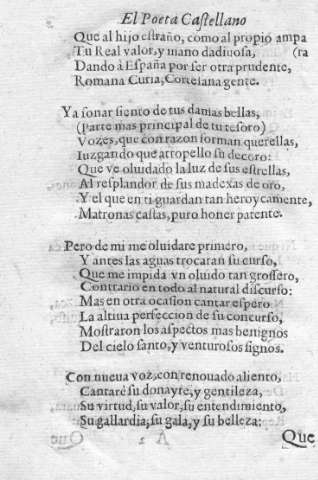 El Poeta Castellano
Que al hijo estraño, como al propio ampa
Tu Real valor, y mano dadiuosa, (ra
Dando à España por ser otra prudente,
Romana Curia, Cortesana gente.
Ya sonar siento de tus damas bellas,
(Parte mas principal de tu tesoro)
Vozes, que con razon forman querellas,
Iuzgando que atropello su decoro:
Que ve oluidado la luz de sus estrellas,
Al resplandor de sus madexas de oro,
Y el que en ti guardan tan heroycamente,
Matronas castas, puro honer patente.
Pero de mi me oluidare primero,
Y antes las aguas trocaran su curso,
Que me impida vn oluido tan grossero,
Contrario en todo al natural discurso:
Mas en otra ocasion cantar espero
La altiua perfeccion de su concurso,
Mostraron los aspectos mas benignos
Del cielo santo, y venturosos signos.
Con nueua voz, con renouado aliento,
Cantaré su donayre, y gentileza,
Su virtud, su valor, su entendimiento,
Su gallardia, su gala, y su belleza:
Que